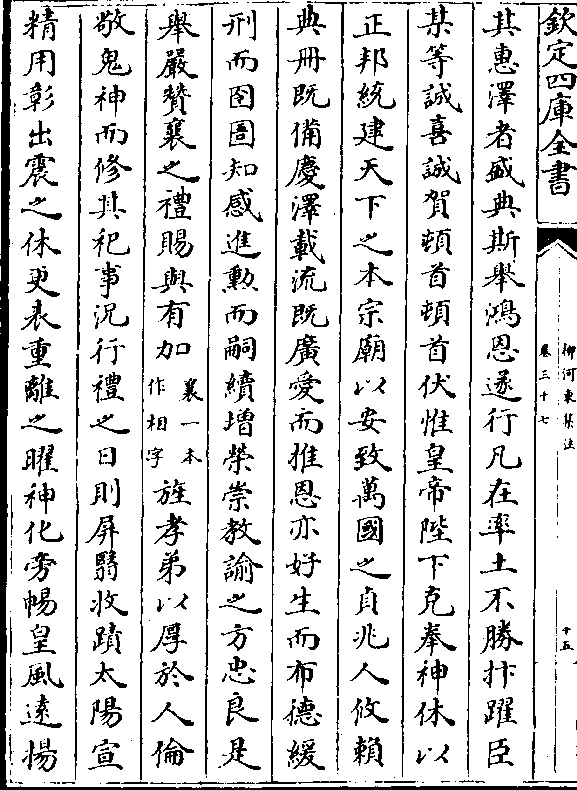 欽定四庫全書
柳河東集注
卷三十七
十五
其惠澤者盛典斯舉鴻恩遂行凡在率土不勝抃躍臣
某等誠喜誠賀頓首頓首伏惟皇帝陛下克奉神休以
正邦統建天下之本宗廟以安致萬國之貞兆人攸賴
典冊既備慶澤載流既廣愛而推恩亦好生而布德緩
刑而囹圄知感進勳而嗣續增榮崇教諭之方忠良是
舉嚴贊襄之禮賜與有加襄一本作相字旌孝弟以厚於人倫
敬鬼神而修其祀事況行禮之日則屏翳收蹟太陽宣
精用彰出震之休更表重離之曜神化旁暢皇風遠揚